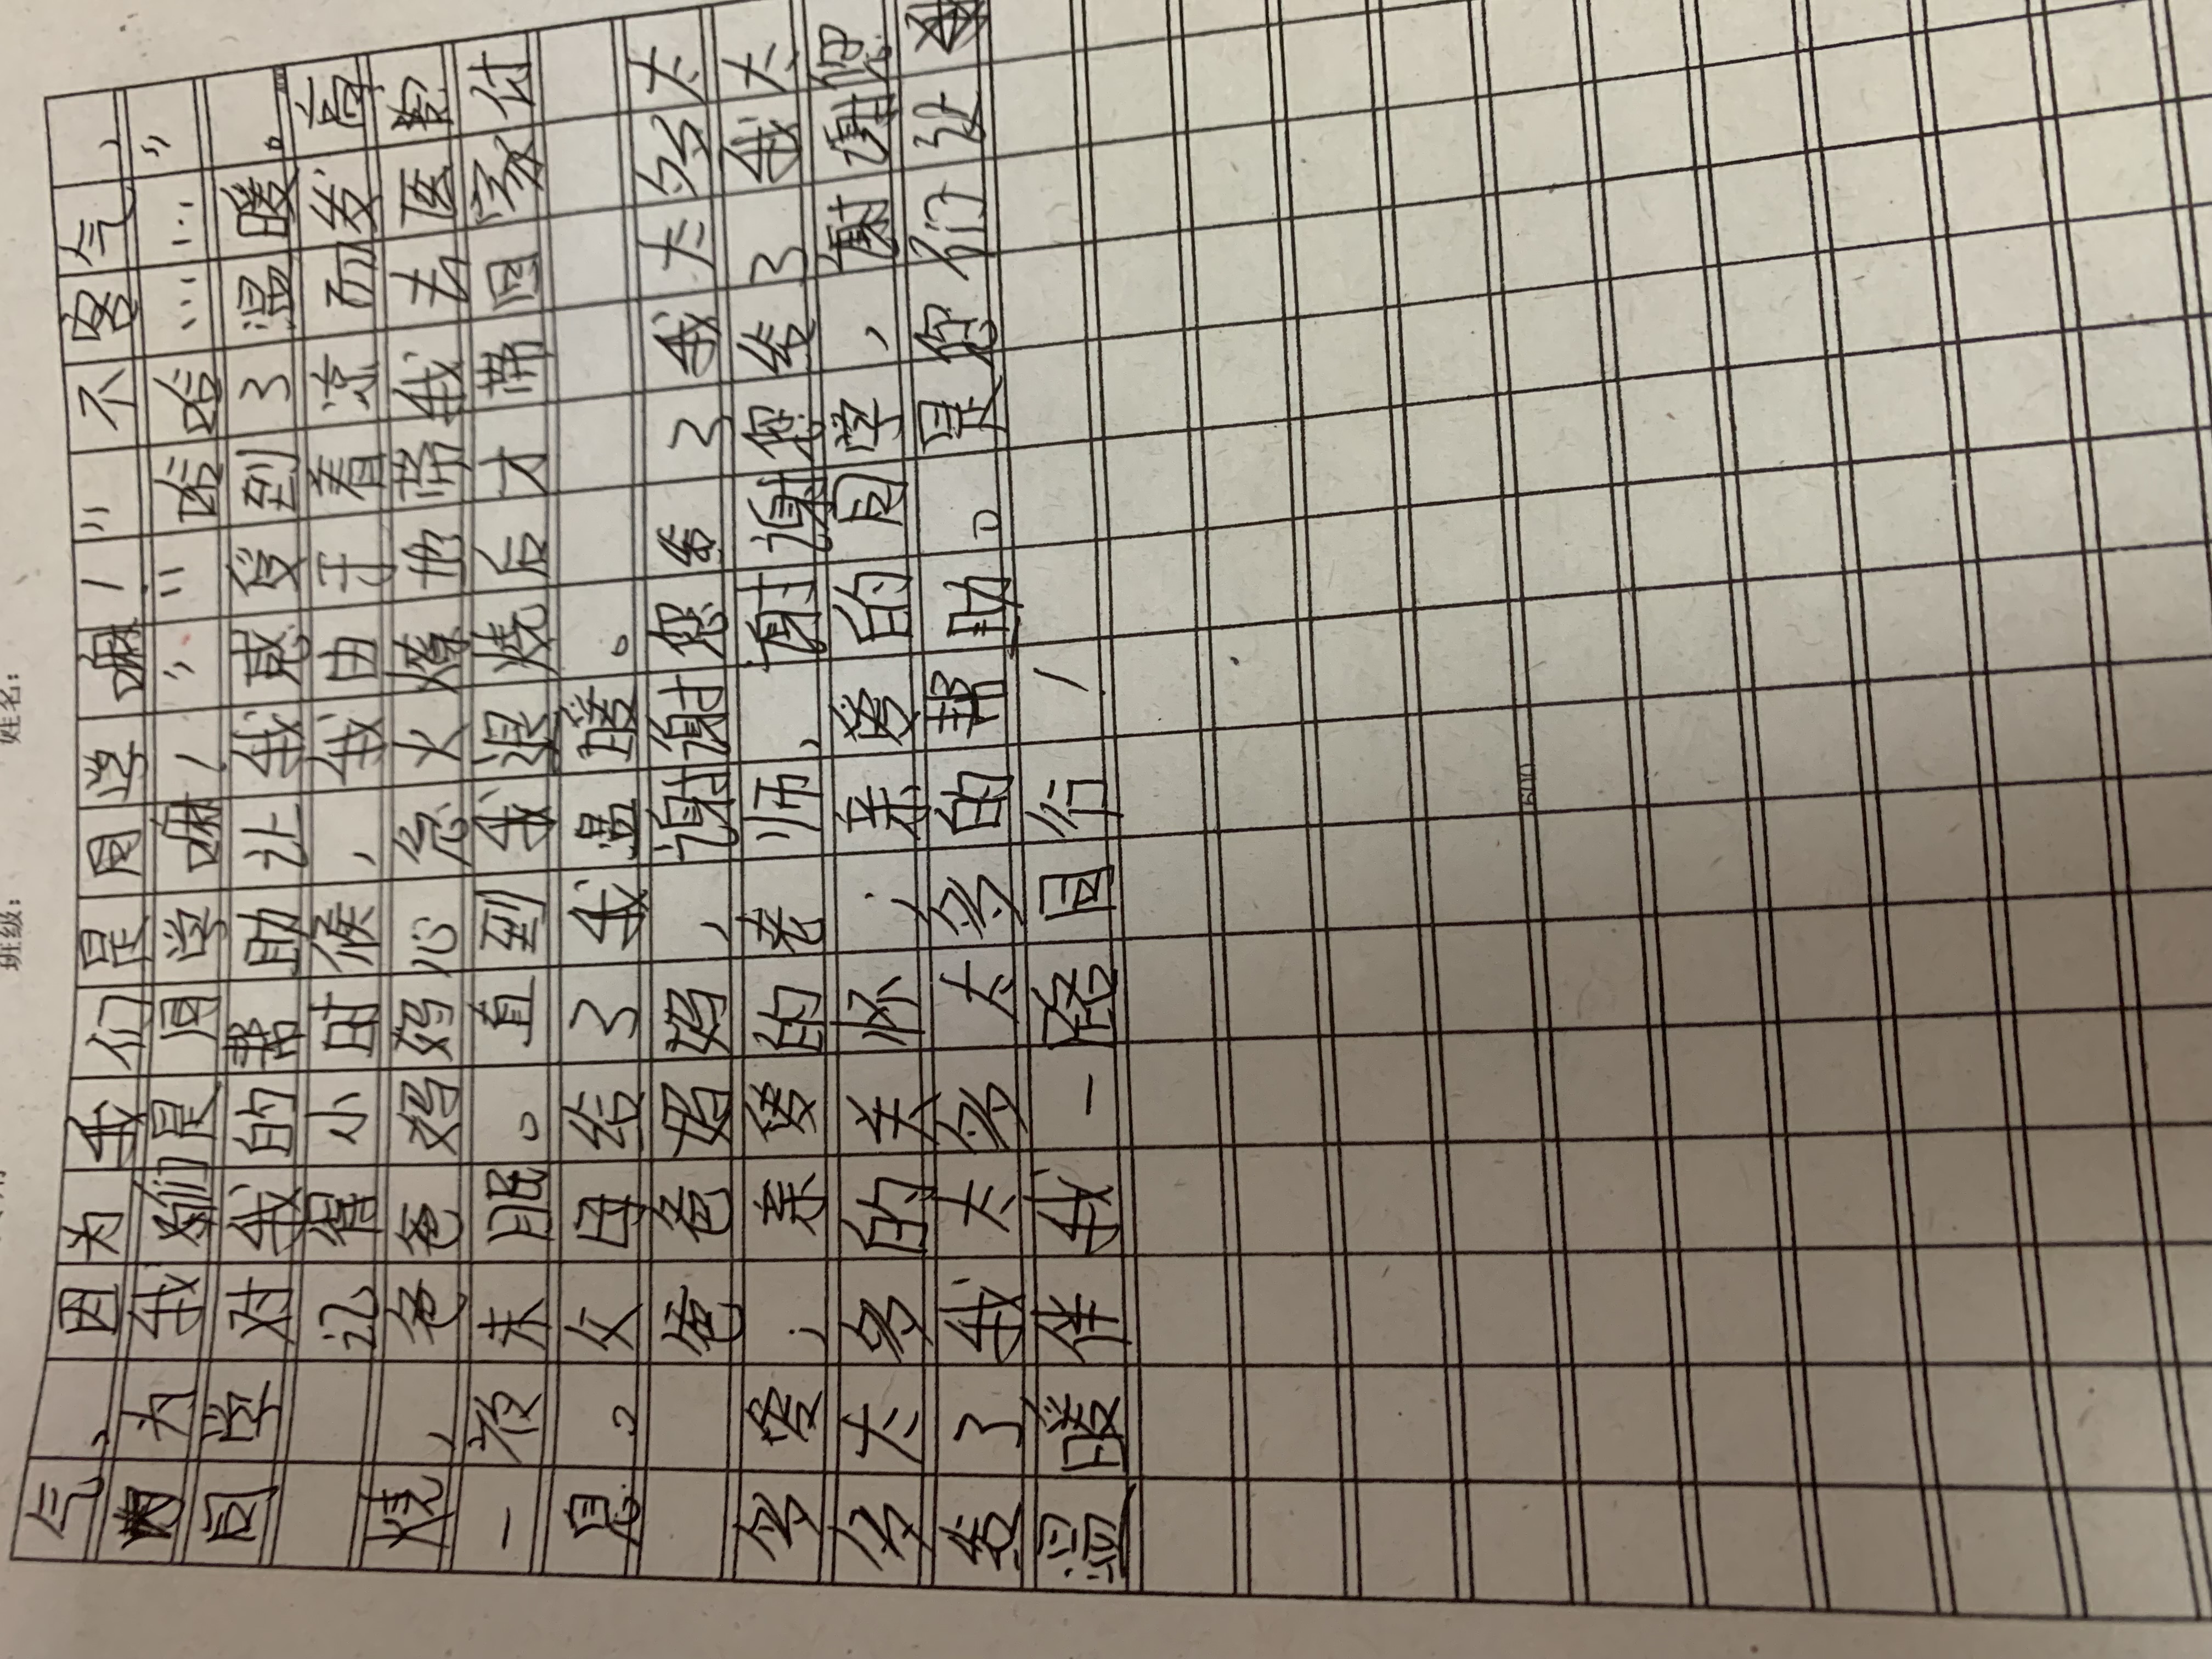 班级： 姓名：
气、因为我们是同学嘛！"不客气，
为我们是同学嘛！""哈哈……"
同学对我的帮助让我感受到了温暖。
记得小时候，我由于着凉而发高
烧，爸爸妈妈心急火燎地带我去医
一夜未眠。直到我退烧后才带回家休
息。父母给了我温暖。
爸爸妈妈，谢谢您给了我太多太
多爱；亲爱的老师，谢谢您给了我太
多太多的关怀；亲爱的同学，谢谢您
给了我太多太多的帮助。是您们让
温暖伴我一路同行！
600